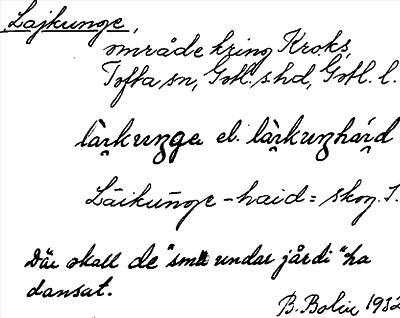 Lajkunge,
område kring Kroks,
Tofta sn, Gotl. s hd, Gotl. l.
làrkuŋgə el. làrkuŋhárd
Läikunge-haid = skog.
Där skall de "små undar jårdi" ha
dansat.
B. Bolin 1932